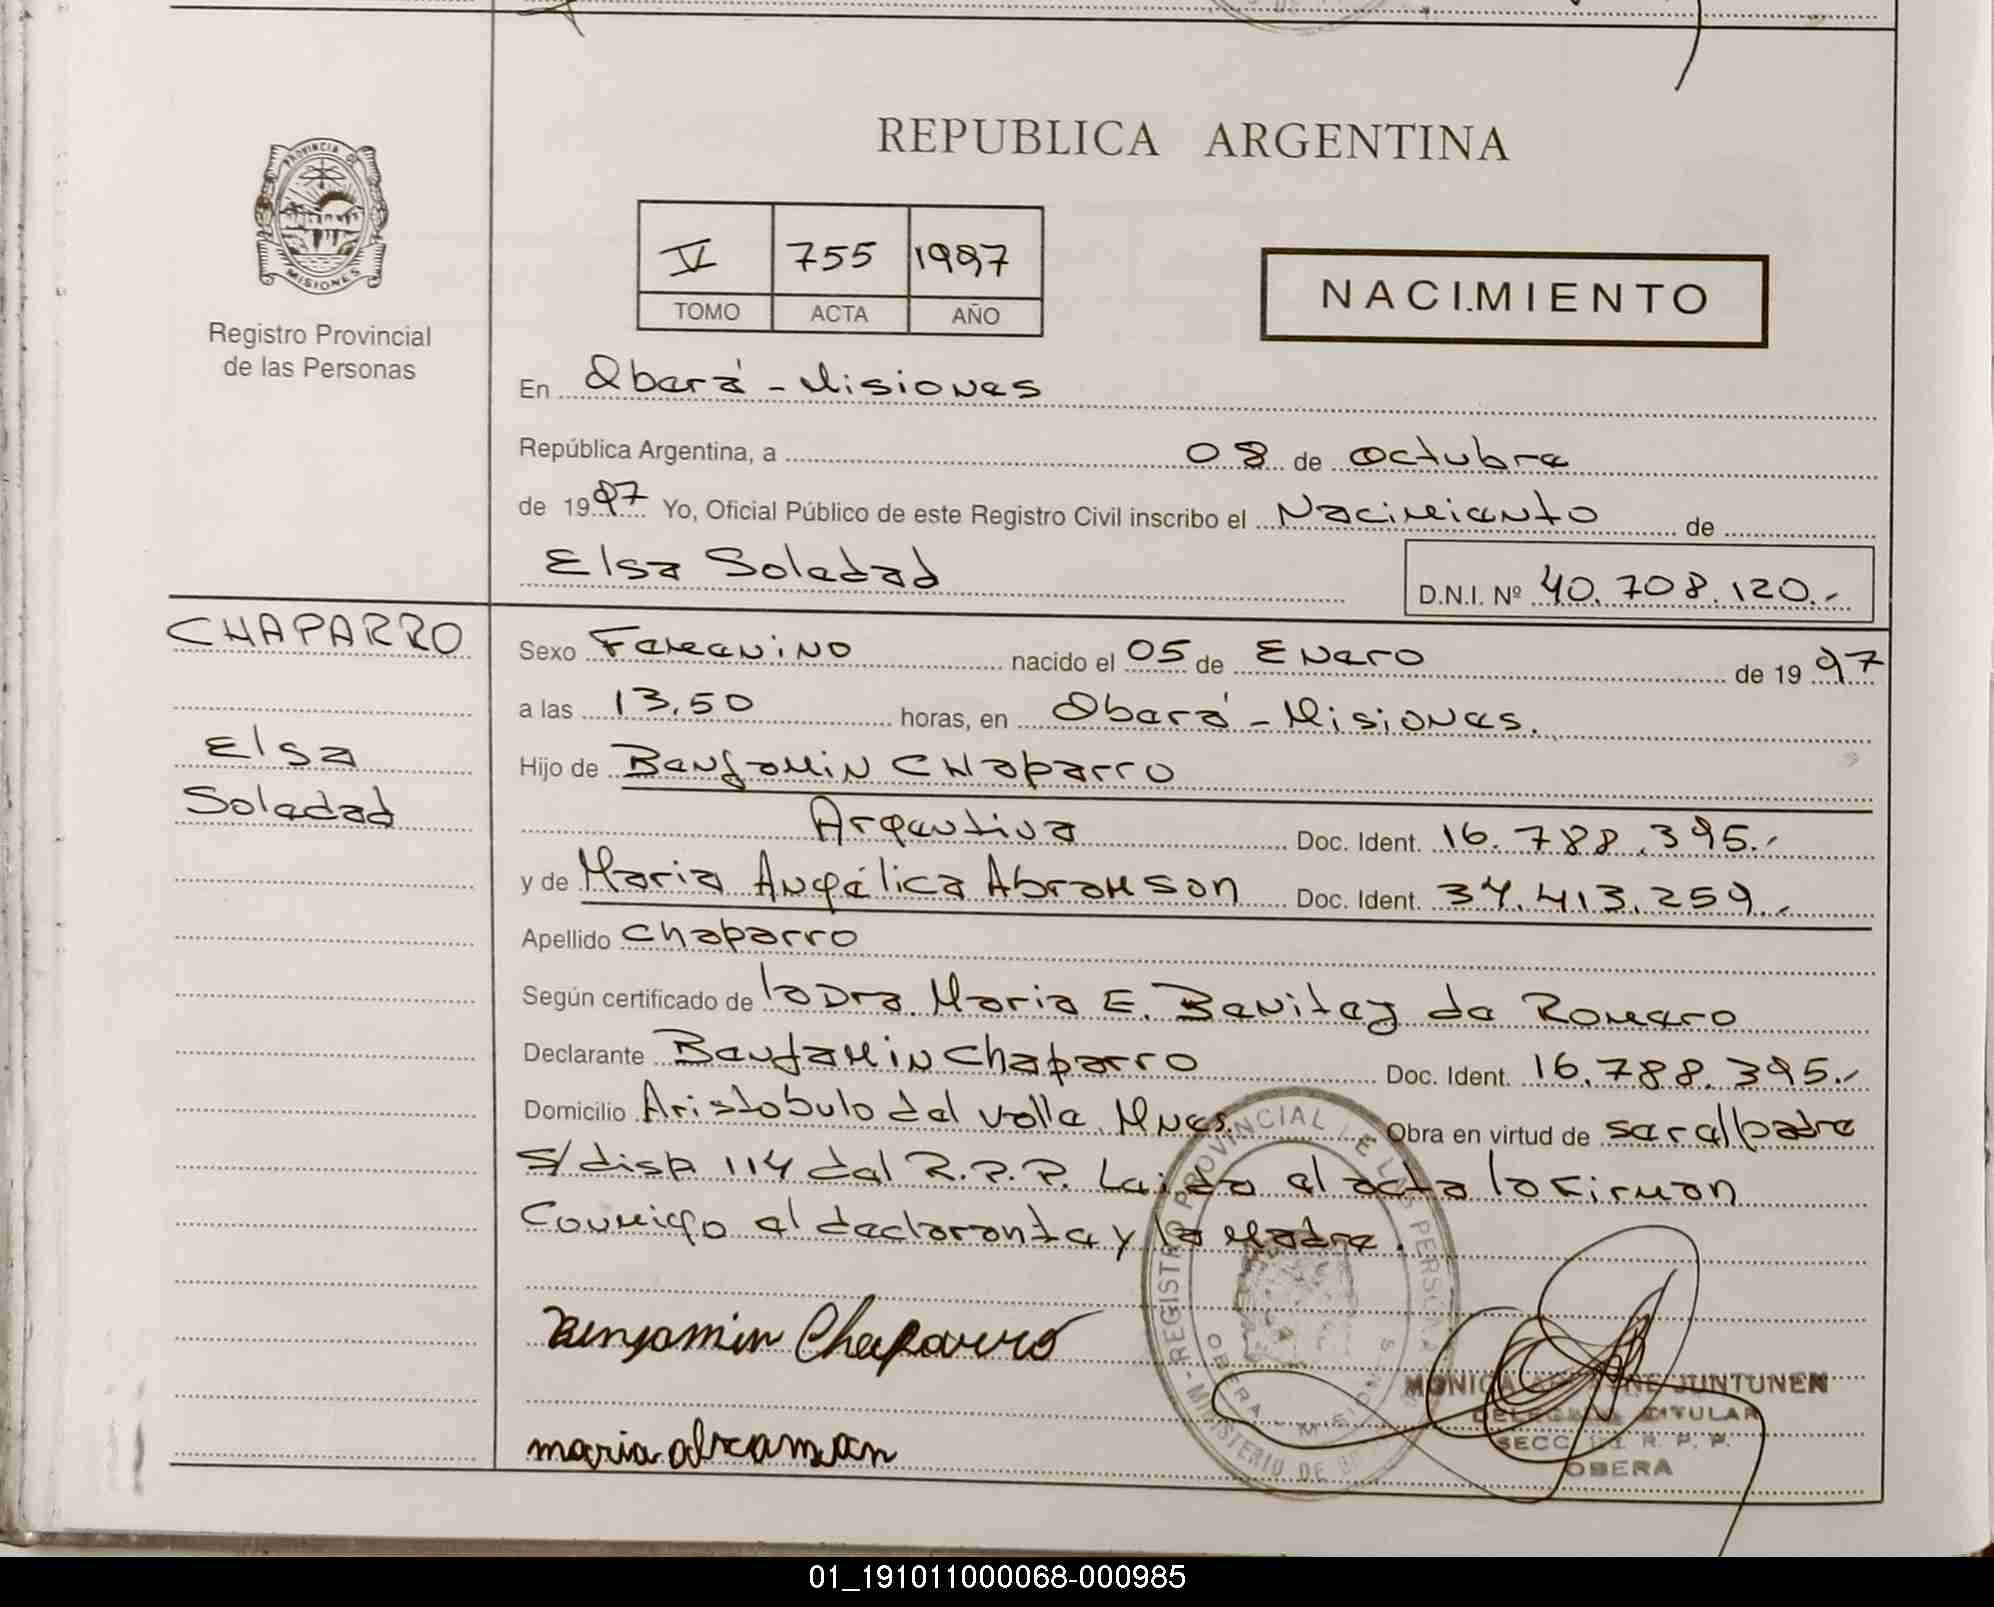 REPUBLICA ARGENTINA
PROVINCIA DE
MISIONES
Registro Provincial
de las Personas
V 755 1997
TOMO ACTA AÑO
NACIMIENTO
En Oberá - Misiones
República Argentina, a 08 de octubre
de 1997 Yo, Oficial Público de este Registro Civil inscribo el Nacimiento de
Elsa Soledad D.N.I. Nº 40.708.120.-
CHAPARRO
Elsa
Soledad
Sexo Femenino nacido el 05 de Enero de 1997
a las 13,50 horas, en Oberá - Misiones.
Hijo de Benjamin Chaparro
Argentina Doc. Ident. 16.788.395.-
y de Maria Angélica Abramson Doc. Ident. 34.413.259.-
Apellido Chaparro
Según certificado de la Dra. Maria E. Benitez de Romero
Declarante Benjamin Chaparro Doc. Ident. 16.788.395.-
Domicilio Aristobulo del Valle Mnes. Obra en virtud de ser el padre
s/disp. 114 del R.P.P. Leida el acta la firman
Conmigo el declarante y la Madre.
Benjamin Chaparro
maria abramson
REGISTRO PROVINCIAL DE LAS PERSONAS
MINISTERIO DE
OBERA - MISIONES
MONICA JUNTUNEN
DELEGADA TITULAR
SECC. R. P. P.
OBERA
01_191011000068-000985